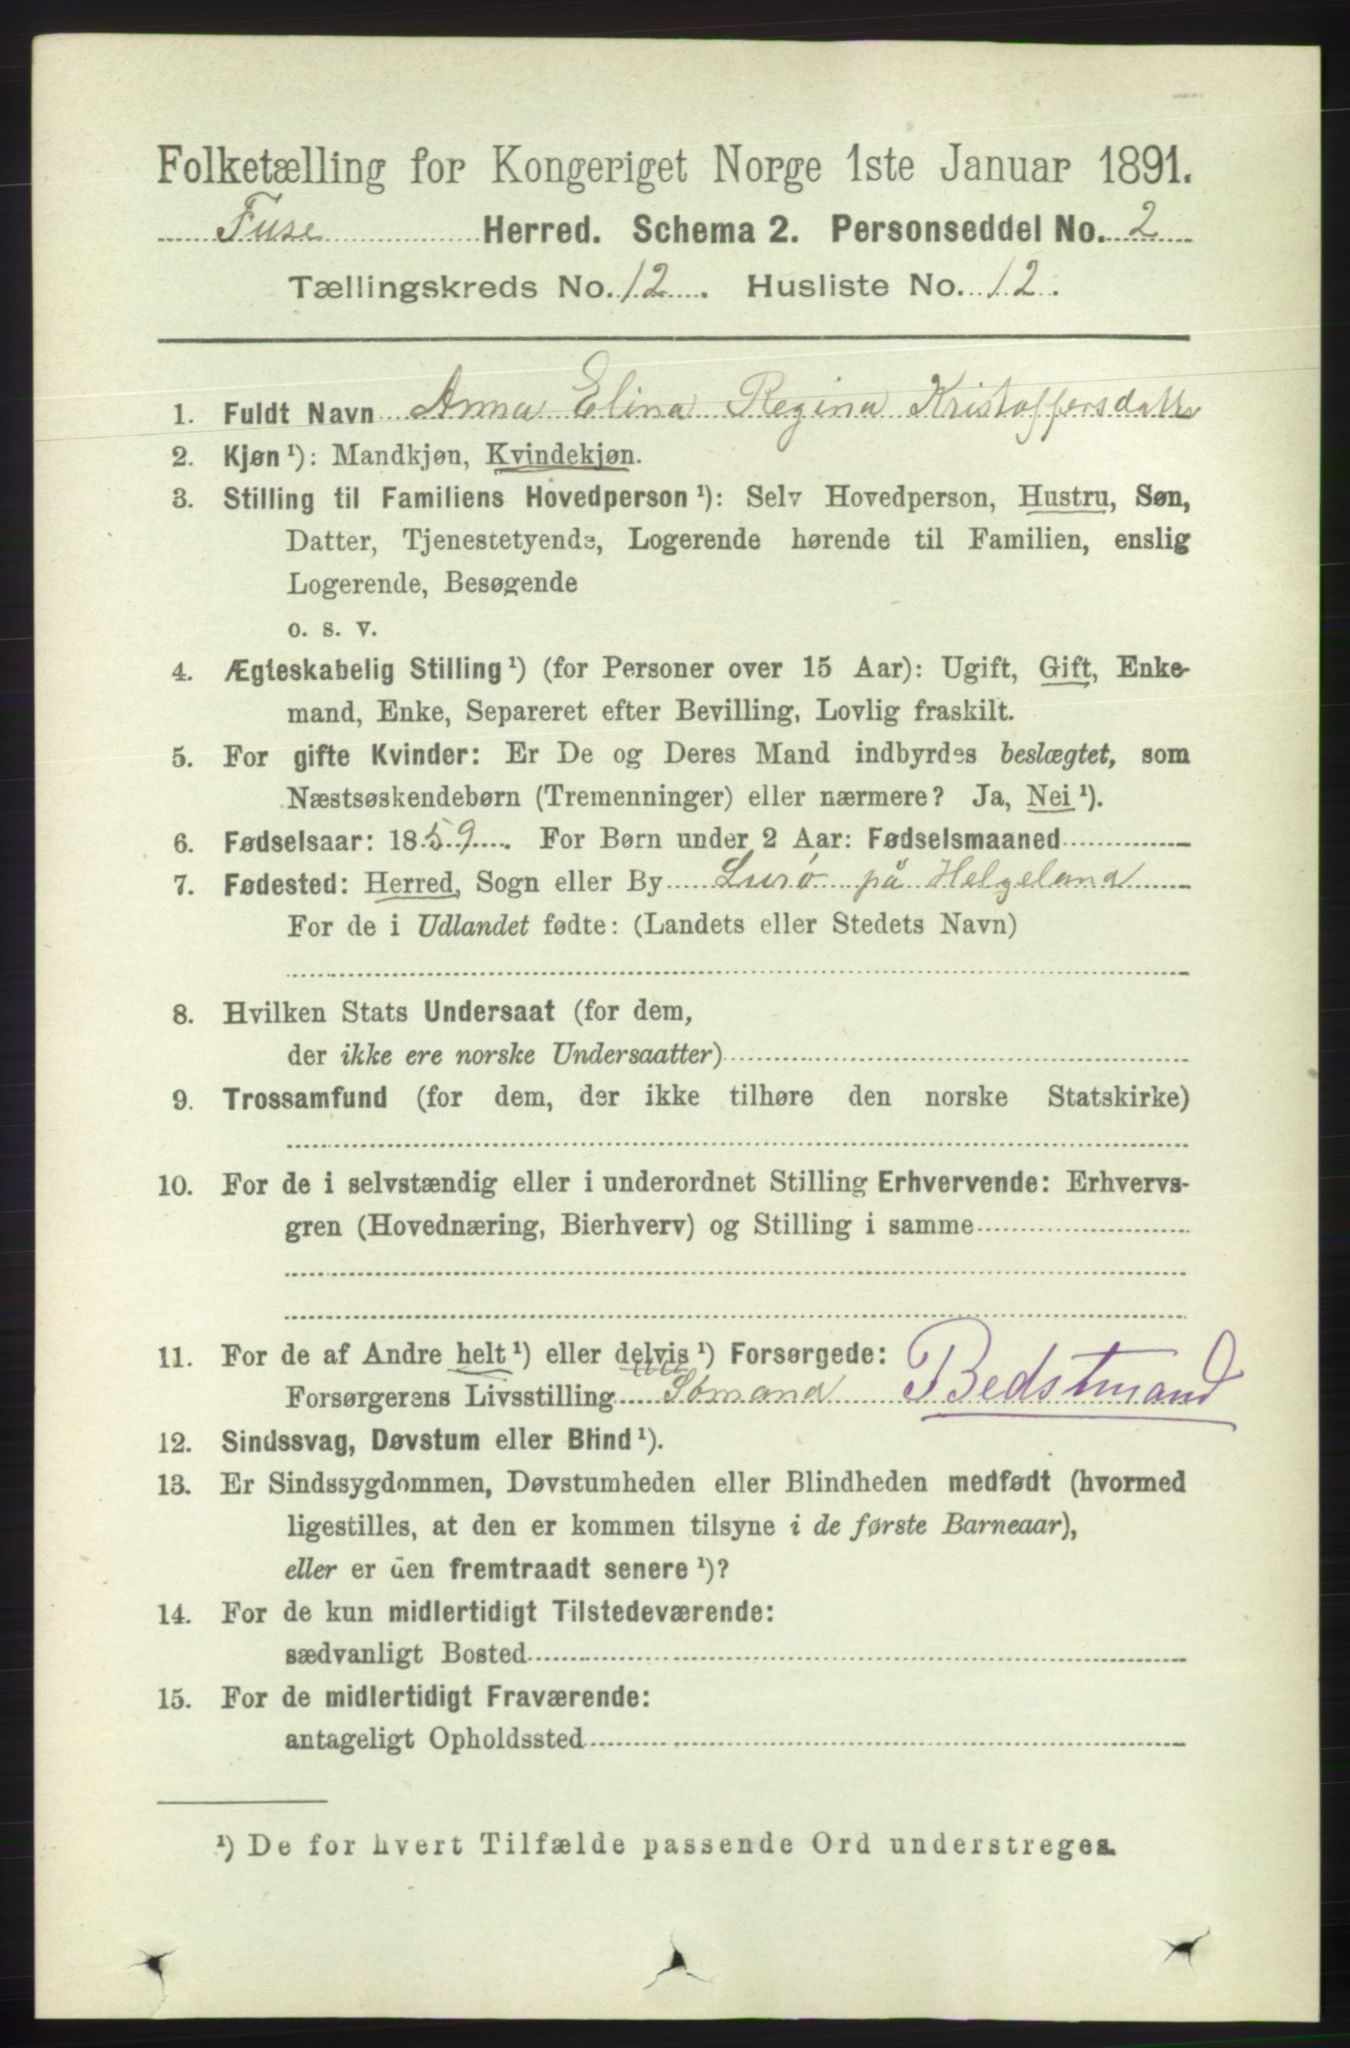 Folketælling for Kongeriget Norge 1ste Januar 1891.
Fuse Herred. Schema 2. Personseddel No. 2
Tællingskreds No. 12. Husliste No. 12.
1. Fuldt Navn Anna Elina Regina Kristoffersdatter
2. Kjøn¹): Mandkjøn, Kvindekjøn.
3. Stilling til Familiens Hovedperson¹): Selv Hovedperson, Hustru, Søn,
Datter, Tjenestetyende, Logerende hørende til Familien, enslig
Logerende, Besøgende
o. s. v.
4. Ægteskabelig Stilling¹) (for Personer over 15 Aar): Ugift, Gift, Enke-
mand, Enke, Separeret efter Bevilling, Lovlig fraskilt.
5. For gifte Kvinder: Er De og Deres Mand indbyrdes beslægtet, som
Næstsøskendebørn (Tremenninger) eller nærmere? Ja, Nei¹).
6. Fødselsaar: 1859. For Børn under 2 Aar: Fødselsmaaned
7. Fødested: Herred, Sogn eller By Lurö på Helgeland
For de i Udlandet fødte: (Landets eller Stedets Navn)
8. Hvilken Stats Undersaat (for dem,
der ikke ere norske Undersaatter)
9. Trossamfund (for dem, der ikke tilhøre den norske Statskirke)
10. For de i selvstændig eller i underordnet Stilling Erhvervende: Erhvervs-
gren (Hovednæring, Bierhverv) og Stilling i samme
11. For de af Andre helt¹) eller delvis¹) Forsørgede:
Forsørgerens Livsstilling Sömand Bedstmand
12. Sindssvag, Døvstum eller Blind¹).
13. Er Sindssygdommen, Døvstumheden eller Blindheden medfødt (hvormed
ligestilles, at den er kommen tilsyne i de første Barneaar),
eller er den fremtraadt senere¹)?
14. For de kun midlertidigt Tilstedeværende:
sædvanligt Bosted
15. For de midlertidigt Fraværende:
antageligt Opholdssted
¹) De for hvert Tilfælde passende Ord understreges.